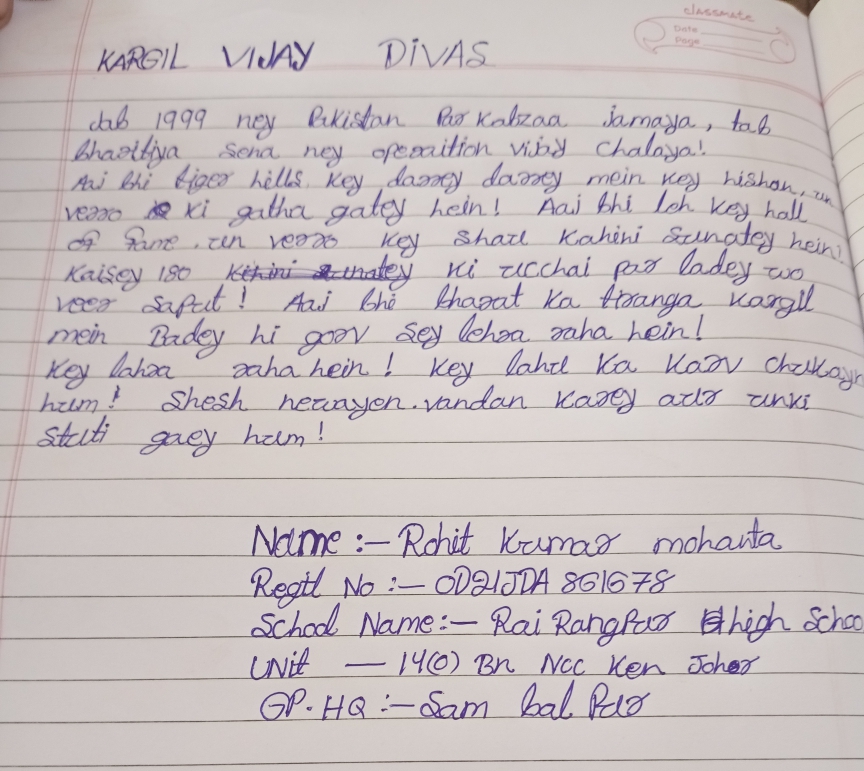 classmate
Date
Page
KARGIL VIJAY DIVAS
Jab 1999 ney Pakistan Par Kabzaa Jamaya, tab
Bhartiya Sena ney operaition vijay Chalaya!
Aaj bhi tiger hills, key darrey darrey mein key nishan, un
veero ki gatha gatey hein! Aaj bhi Loh key hall
of fame, un veero key Sharu Kahini Sunatey hein!
Kaisey 180 ki ucchai par ladey wo
veer Saput! Aaj bhi bharat Ka tiranga Kargil
mein Badey hi gorv Sey lehra raha hein!
Key lahra raha hein! Key lahu Ka Karv Chukayn
hum! Shesh newayen. vandan Karey aur unki
Stuti gaey hum!
Name :- Rohit Kumar mohanta
Regtl No :- OD21JDA 861678
School Name:- Rai Rangpur high Schoo
UNit - 14(O) Bn Ncc Ken Joher
GP. HQ :- Sam bal Pur